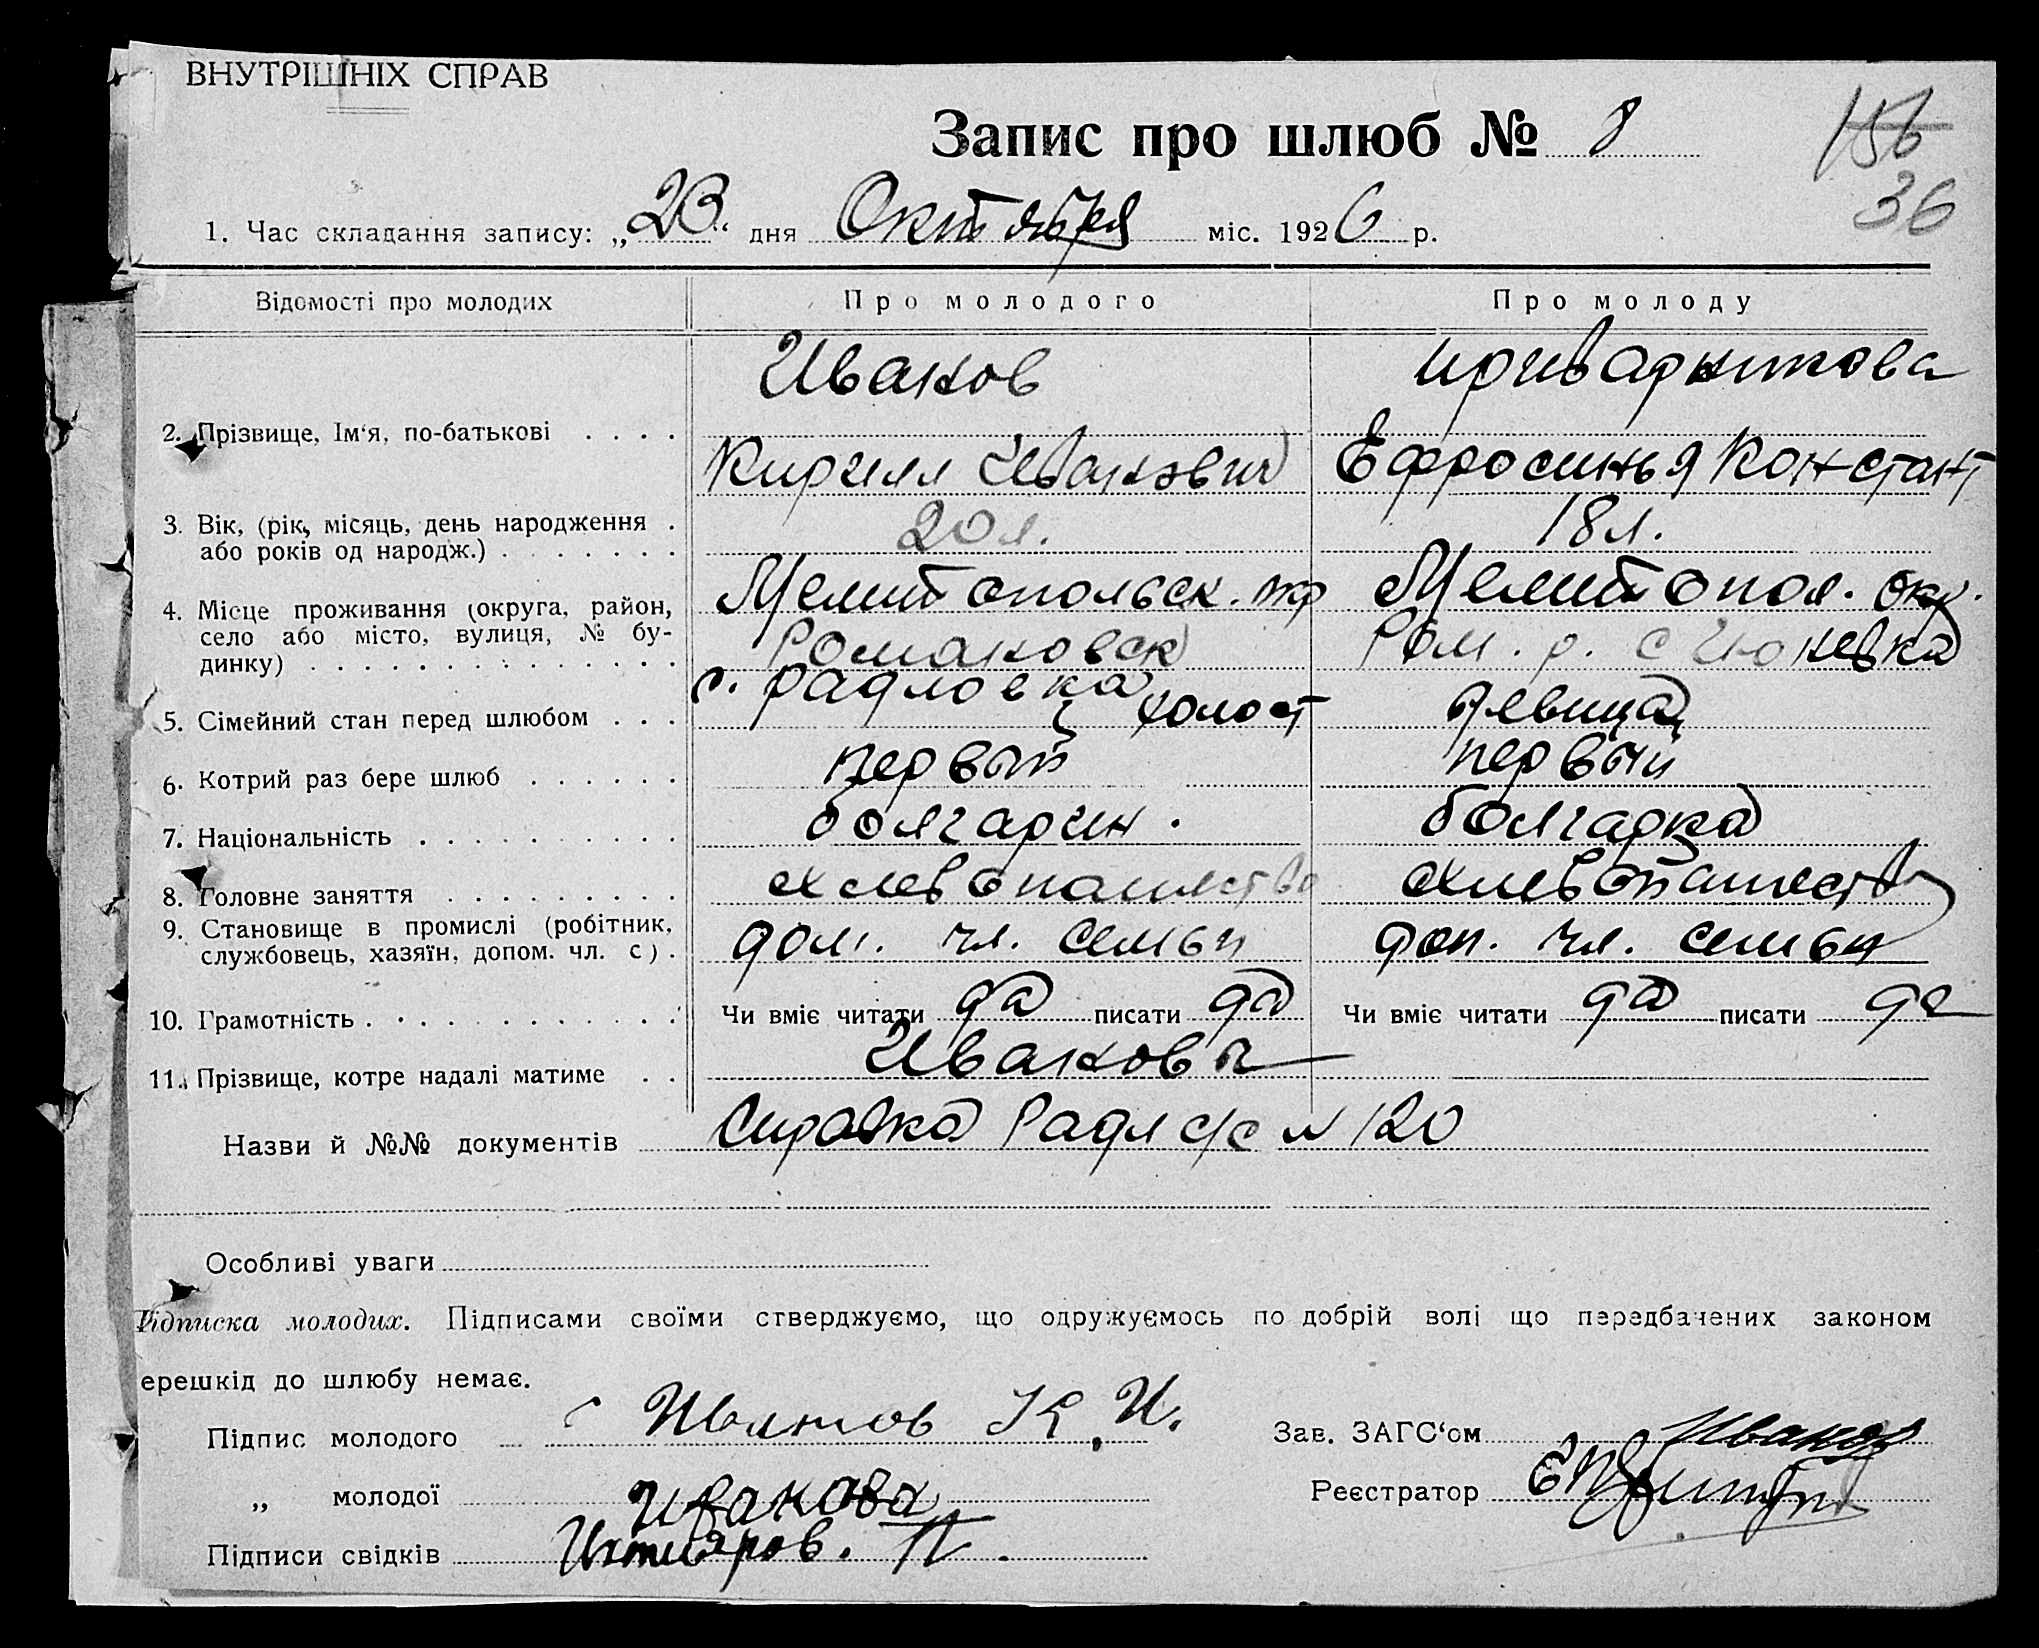 ВНУТРІШНІХ СПРАВ
Запис про шлюб № 8
156
36
1. Час складання запису: „23“ дня Октября міс. 1926 р.
Відомості про молодих
Про молодого
Про молоду
2. Прізвище, Ім'я, по-батькові . . . .
Иванов
Кирилл Иванович
Ефросинья Констант
3. Вік, (рік, місяць, день народження .
або років од народж.) . . . . . . .
20 л.
18 л.
4. Місце проживання (округа, район,
село або місто, вулиця, № бу-
динку) . . . . . . . . . . . . . .
Мелитопольск. окр
Романовск
с. Радловка
Мелитопол. окр.
Ром. р. с
5. Сімейний стан перед шлюбом . . .
холост
девица
6. Котрий раз бере шлюб . . . . . .
первый
первый
7. Національність . . . . . . . . . .
болгарин.
болгарка
8. Головне заняття . . . . . . . . .
9. Становище в промислі (робітник,
службовець, хазяїн, допом. чл. с) .
доп. чл. семьи
доп. чл. семьи
10. Грамотність . . . . . . . . . . . .
Чи вміє читати да писати да
Чи вміє читати да писати да
11. Прізвище, котре надалі матиме . .
Ивановы
Назви й №№ документів Справка Радл с/с N 120
Особливі уваги
Підписка молодих. Підписами своїми стверджуємо, що одружуємось по добрій волі що передбачених законом
ерешкід до шлюбу немає.
Підпис молодого Иванов К. И.
„ молодої Иванова
Підписи свідків
Зав. ЗАГС'ом Иванов
Реєстратор